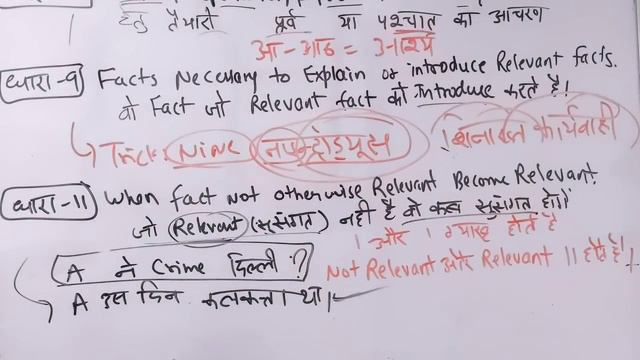 हेतु तैयारी पूर्व या पश्चात का आचरण
आ-आठ =
धारा-9 Facts Neccessary to Explain or introduce Relevant facts.
वो Fact जो Relevant fact को Introduce करते है।
Trick: Nine शिनाख्त कार्यवाही
धारा-11 When fact not otherwise Relevant Become Relevant.
जो Relevant (सुसंगत) नही है वो कब सुसंगत होगे
। और । ग्यारह होते है
A ने Crime दिल्ली ? Not Relevant और Relevant 11 होते है।
A उस दिन कलकत्ता था।